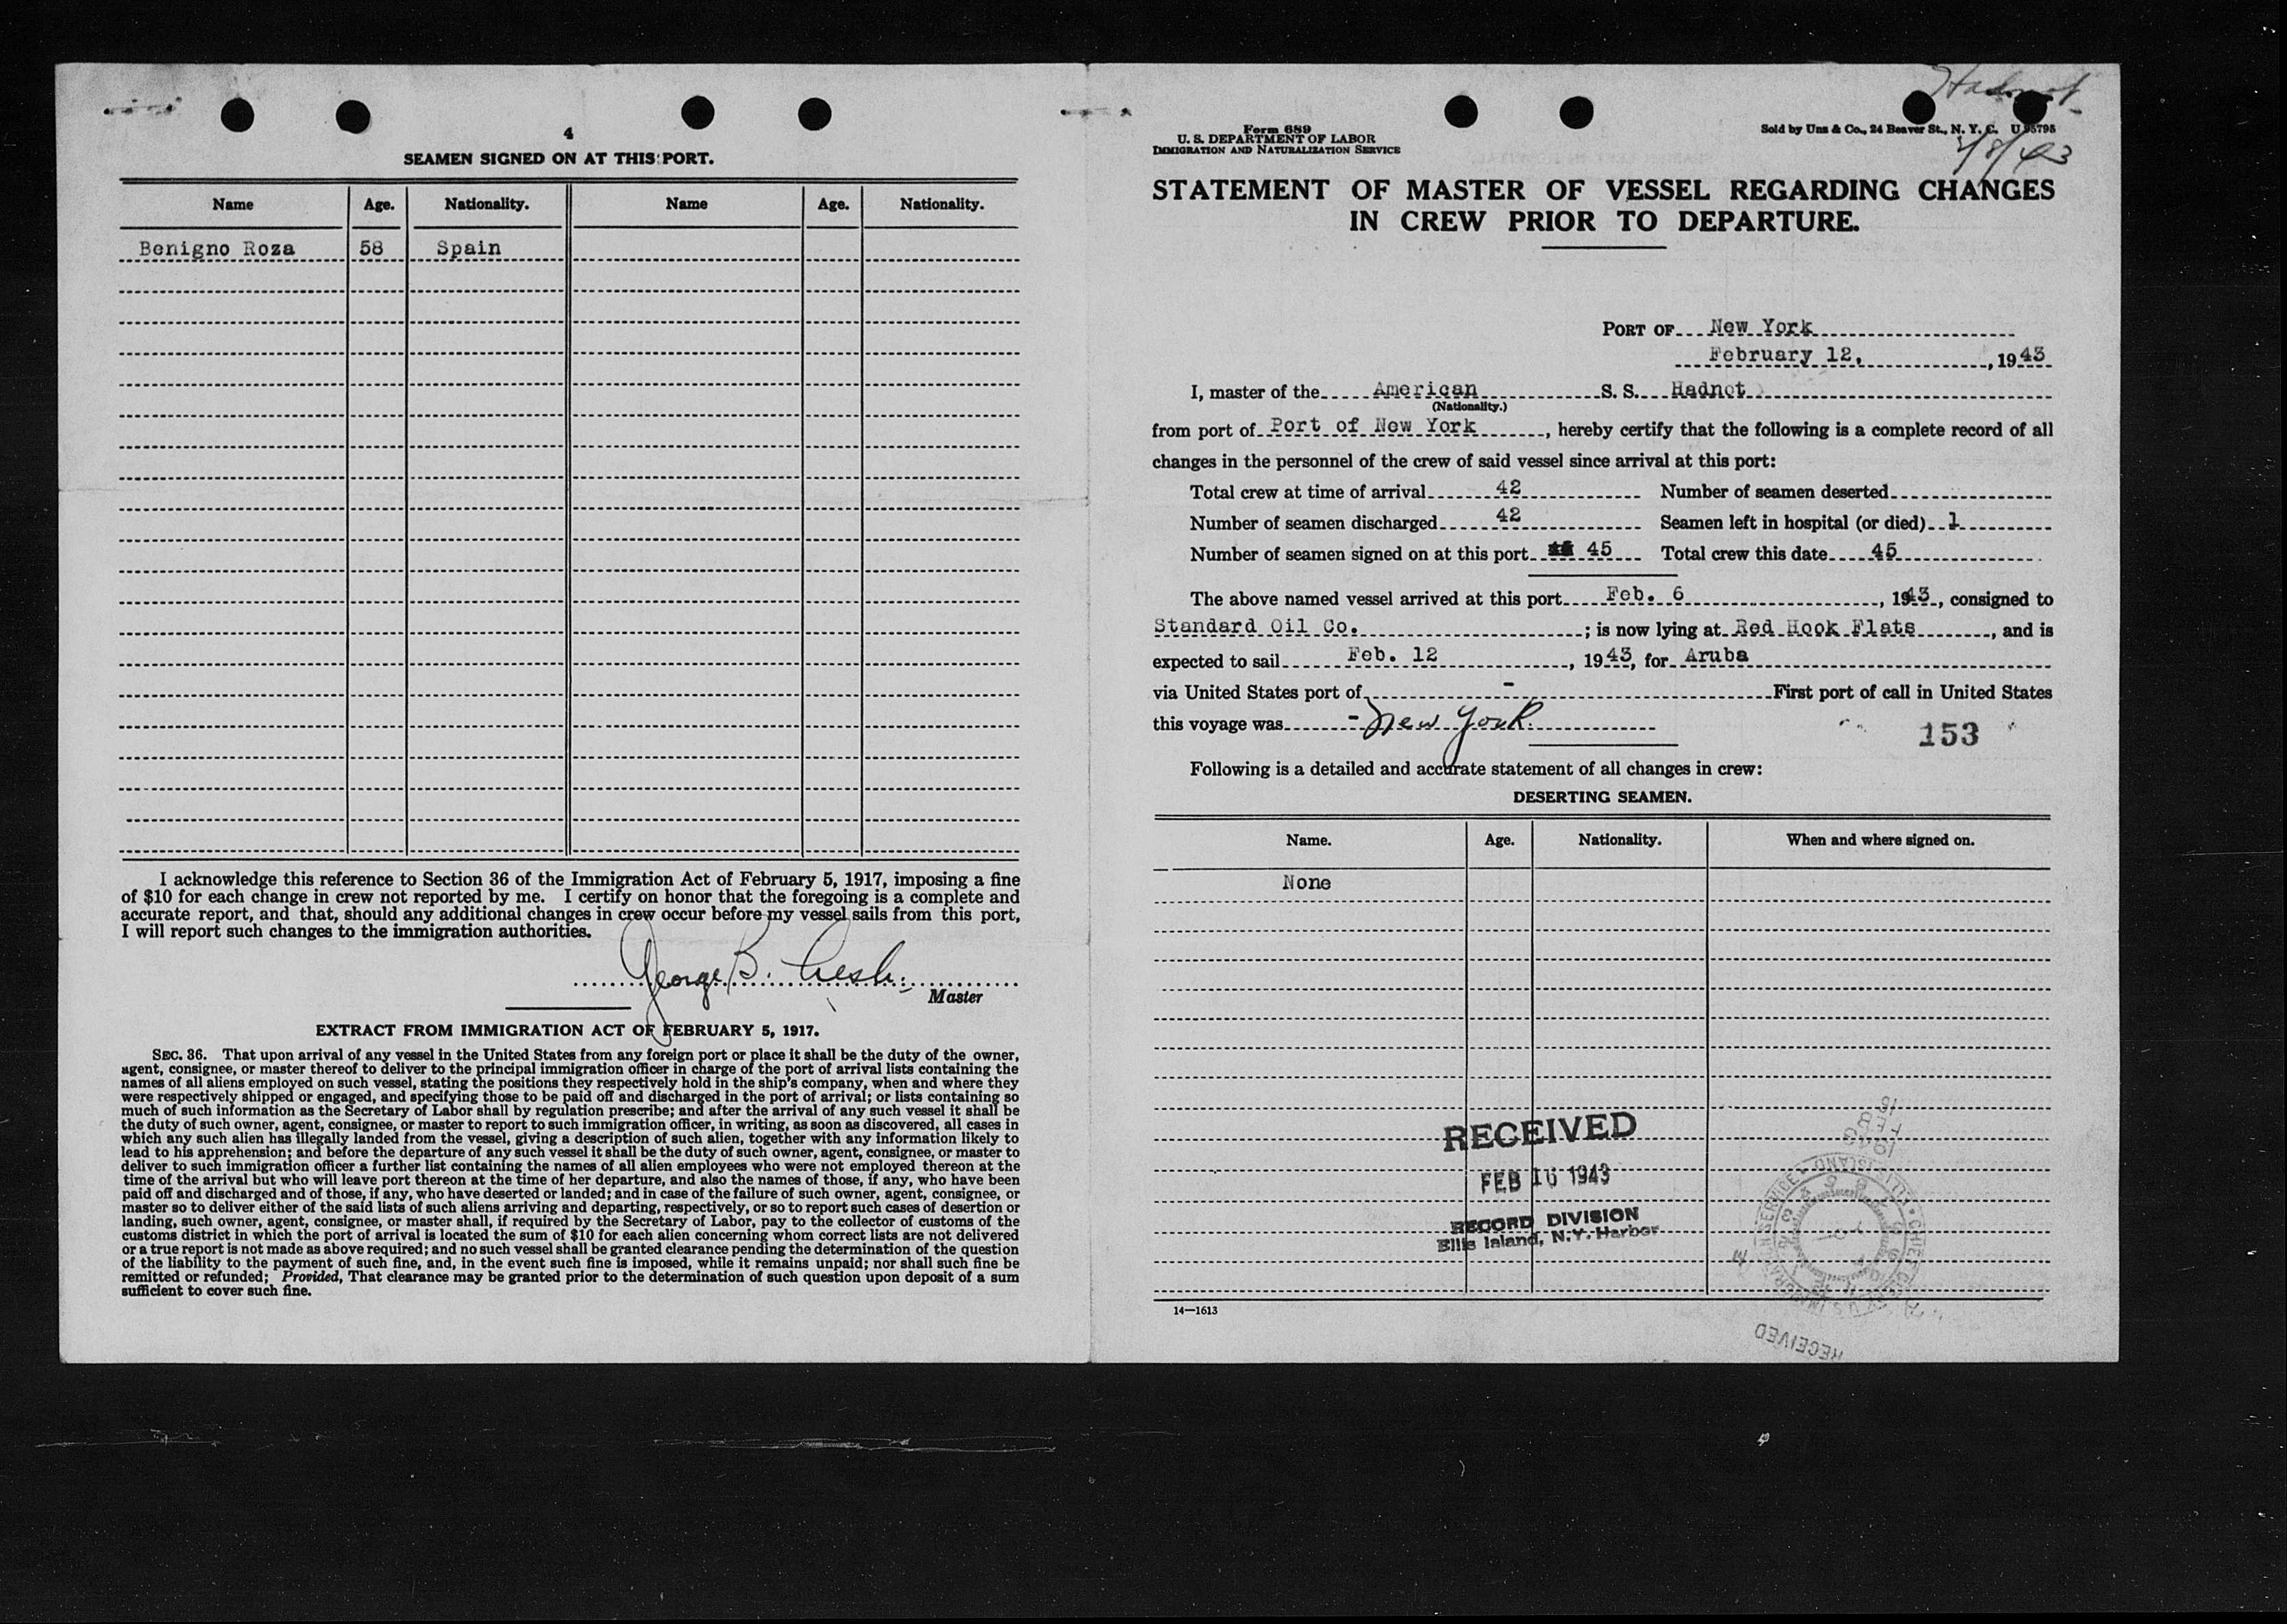 4
SEAMEN SIGNED ON AT THIS PORT.
Name Age. Nationality. Name Age. Nationality.
Benigno Roza 58 Spain
I acknowledge this reference to Section 36 of the Immigration Act of February 5, 1917, imposing a fine
of $10 for each change in crew not reported by me. I certify on honor that the foregoing is a complete and
accurate report, and that, should any additional changes in crew occur before my vessel sails from this port,
I will report such changes to the immigration authorities.
George B.
Master
EXTRACT FROM IMMIGRATION ACT OF FEBRUARY 5, 1917.
SEC. 36. That upon arrival of any vessel in the United States from any foreign port or place it shall be the duty of the owner,
agent, consignee, or master thereof to deliver to the principal immigration officer in charge of the port of arrival lists containing the
names of all aliens employed on such vessel, stating the positions they respectively hold in the ship's company, when and where they
were respectively shipped or engaged, and specifying those to be paid off and discharged in the port of arrival; or lists containing so
much of such information as the Secretary of Labor shall by regulation prescribe; and after the arrival of any such vessel it shall be
the duty of such owner, agent, consignee, or master to report to such immigration officer, in writing, as soon as discovered, all cases in
which any such alien has illegally landed from the vessel, giving a description of such alien, together with any information likely to
lead to his apprehension; and before the departure of any such vessel it shall be the duty of such owner, agent, consignee, or master to
deliver to such immigration officer a further list containing the names of all alien employees who were not employed thereon at the
time of the arrival but who will leave port thereon at the time of her departure, and also the names of those, if any, who have been
paid off and discharged and of those, if any, who have deserted or landed; and in case of the failure of such owner, agent, consignee, or
master so to deliver either of the said lists of such aliens arriving and departing, respectively, or so to report such cases of desertion or
landing, such owner, agent, consignee, or master shall, if required by the Secretary of Labor, pay to the collector of customs of the
customs district in which the port of arrival is located the sum of $10 for each alien concerning whom correct lists are not delivered
or a true report is not made as above required; and no such vessel shall be granted clearance pending the determination of the question
of the liability to the payment of such fine, and, in the event such fine is imposed, while it remains unpaid; nor shall such fine be
remitted or refunded; Provided, That clearance may be granted prior to the determination of such question upon deposit of a sum
sufficient to cover such fine.
Hadnot
Form 689
U. S. DEPARTMENT OF LABOR
IMMIGRATION AND NATURALIZATION SERVICE
Sold by Unz & Co., 24 Beaver St., N. Y. C.
2/8/43
STATEMENT OF MASTER OF VESSEL REGARDING CHANGES
IN CREW PRIOR TO DEPARTURE.
PORT OF New York
February 12, , 1943
I, master of the American S. S. Hadnot
(Nationality.)
from port of Port of New York , hereby certify that the following is a complete record of all
changes in the personnel of the crew of said vessel since arrival at this port:
Total crew at time of arrival 42 Number of seamen deserted
Number of seamen discharged 42 Seamen left in hospital (or died) 1
Number of seamen signed on at this port 45 Total crew this date 45
The above named vessel arrived at this port Feb. 6 , 1943, consigned to
Standard Oil Co. ; is now lying at Red Hook Flats , and is
expected to sail Feb. 12 , 1943, for Aruba
via United States port of - First port of call in United States
this voyage was - New York
153
Following is a detailed and accurate statement of all changes in crew:
DESERTING SEAMEN.
Name. Age. Nationality. When and where signed on.
None
RECEIVED
FEB 16 1943
RECORD DIVISION
Ellis Island, N.Y. Harbor
14—1613
RECEIVED